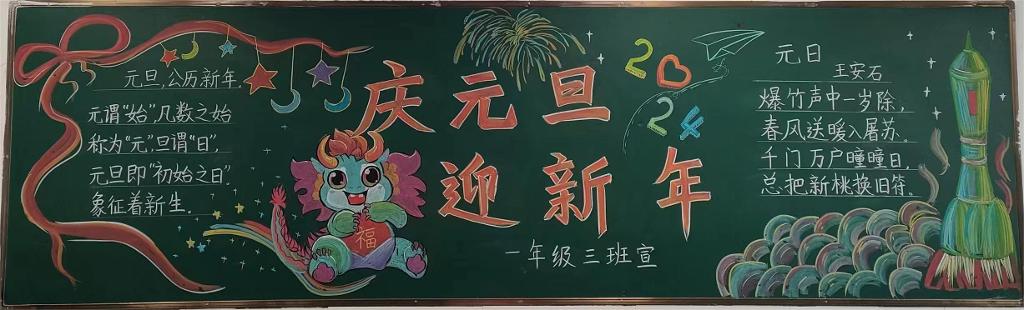 元旦,公历新年.
元谓"始",凡数之始
称为"元",旦谓"日",
元旦即"初始之日"
象征着新生.
庆元旦
迎新年
2024
福
一年级三班宣
元日
王安石
爆竹声中一岁除,
春风送暖入屠苏。
千门万户曈曈日,
总把新桃换旧符。